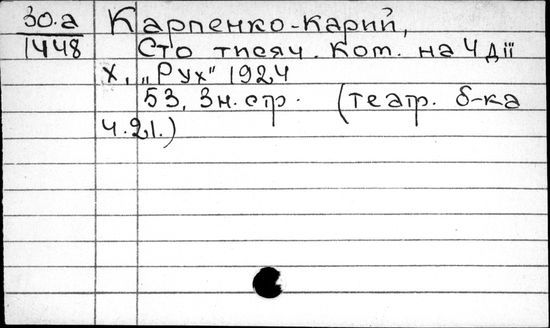 30.а Карпенко-Карий,
1448 Сто тисяч. Ком. на 4 дії
Х. „Рух" 1924
53, 3н. стр. (театр. б-ка
ч. 21.)